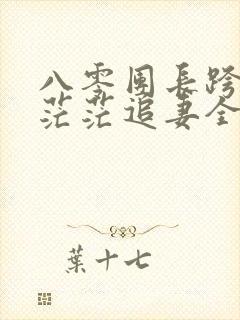 八零团长跨
茫茫追妻全
葉十七